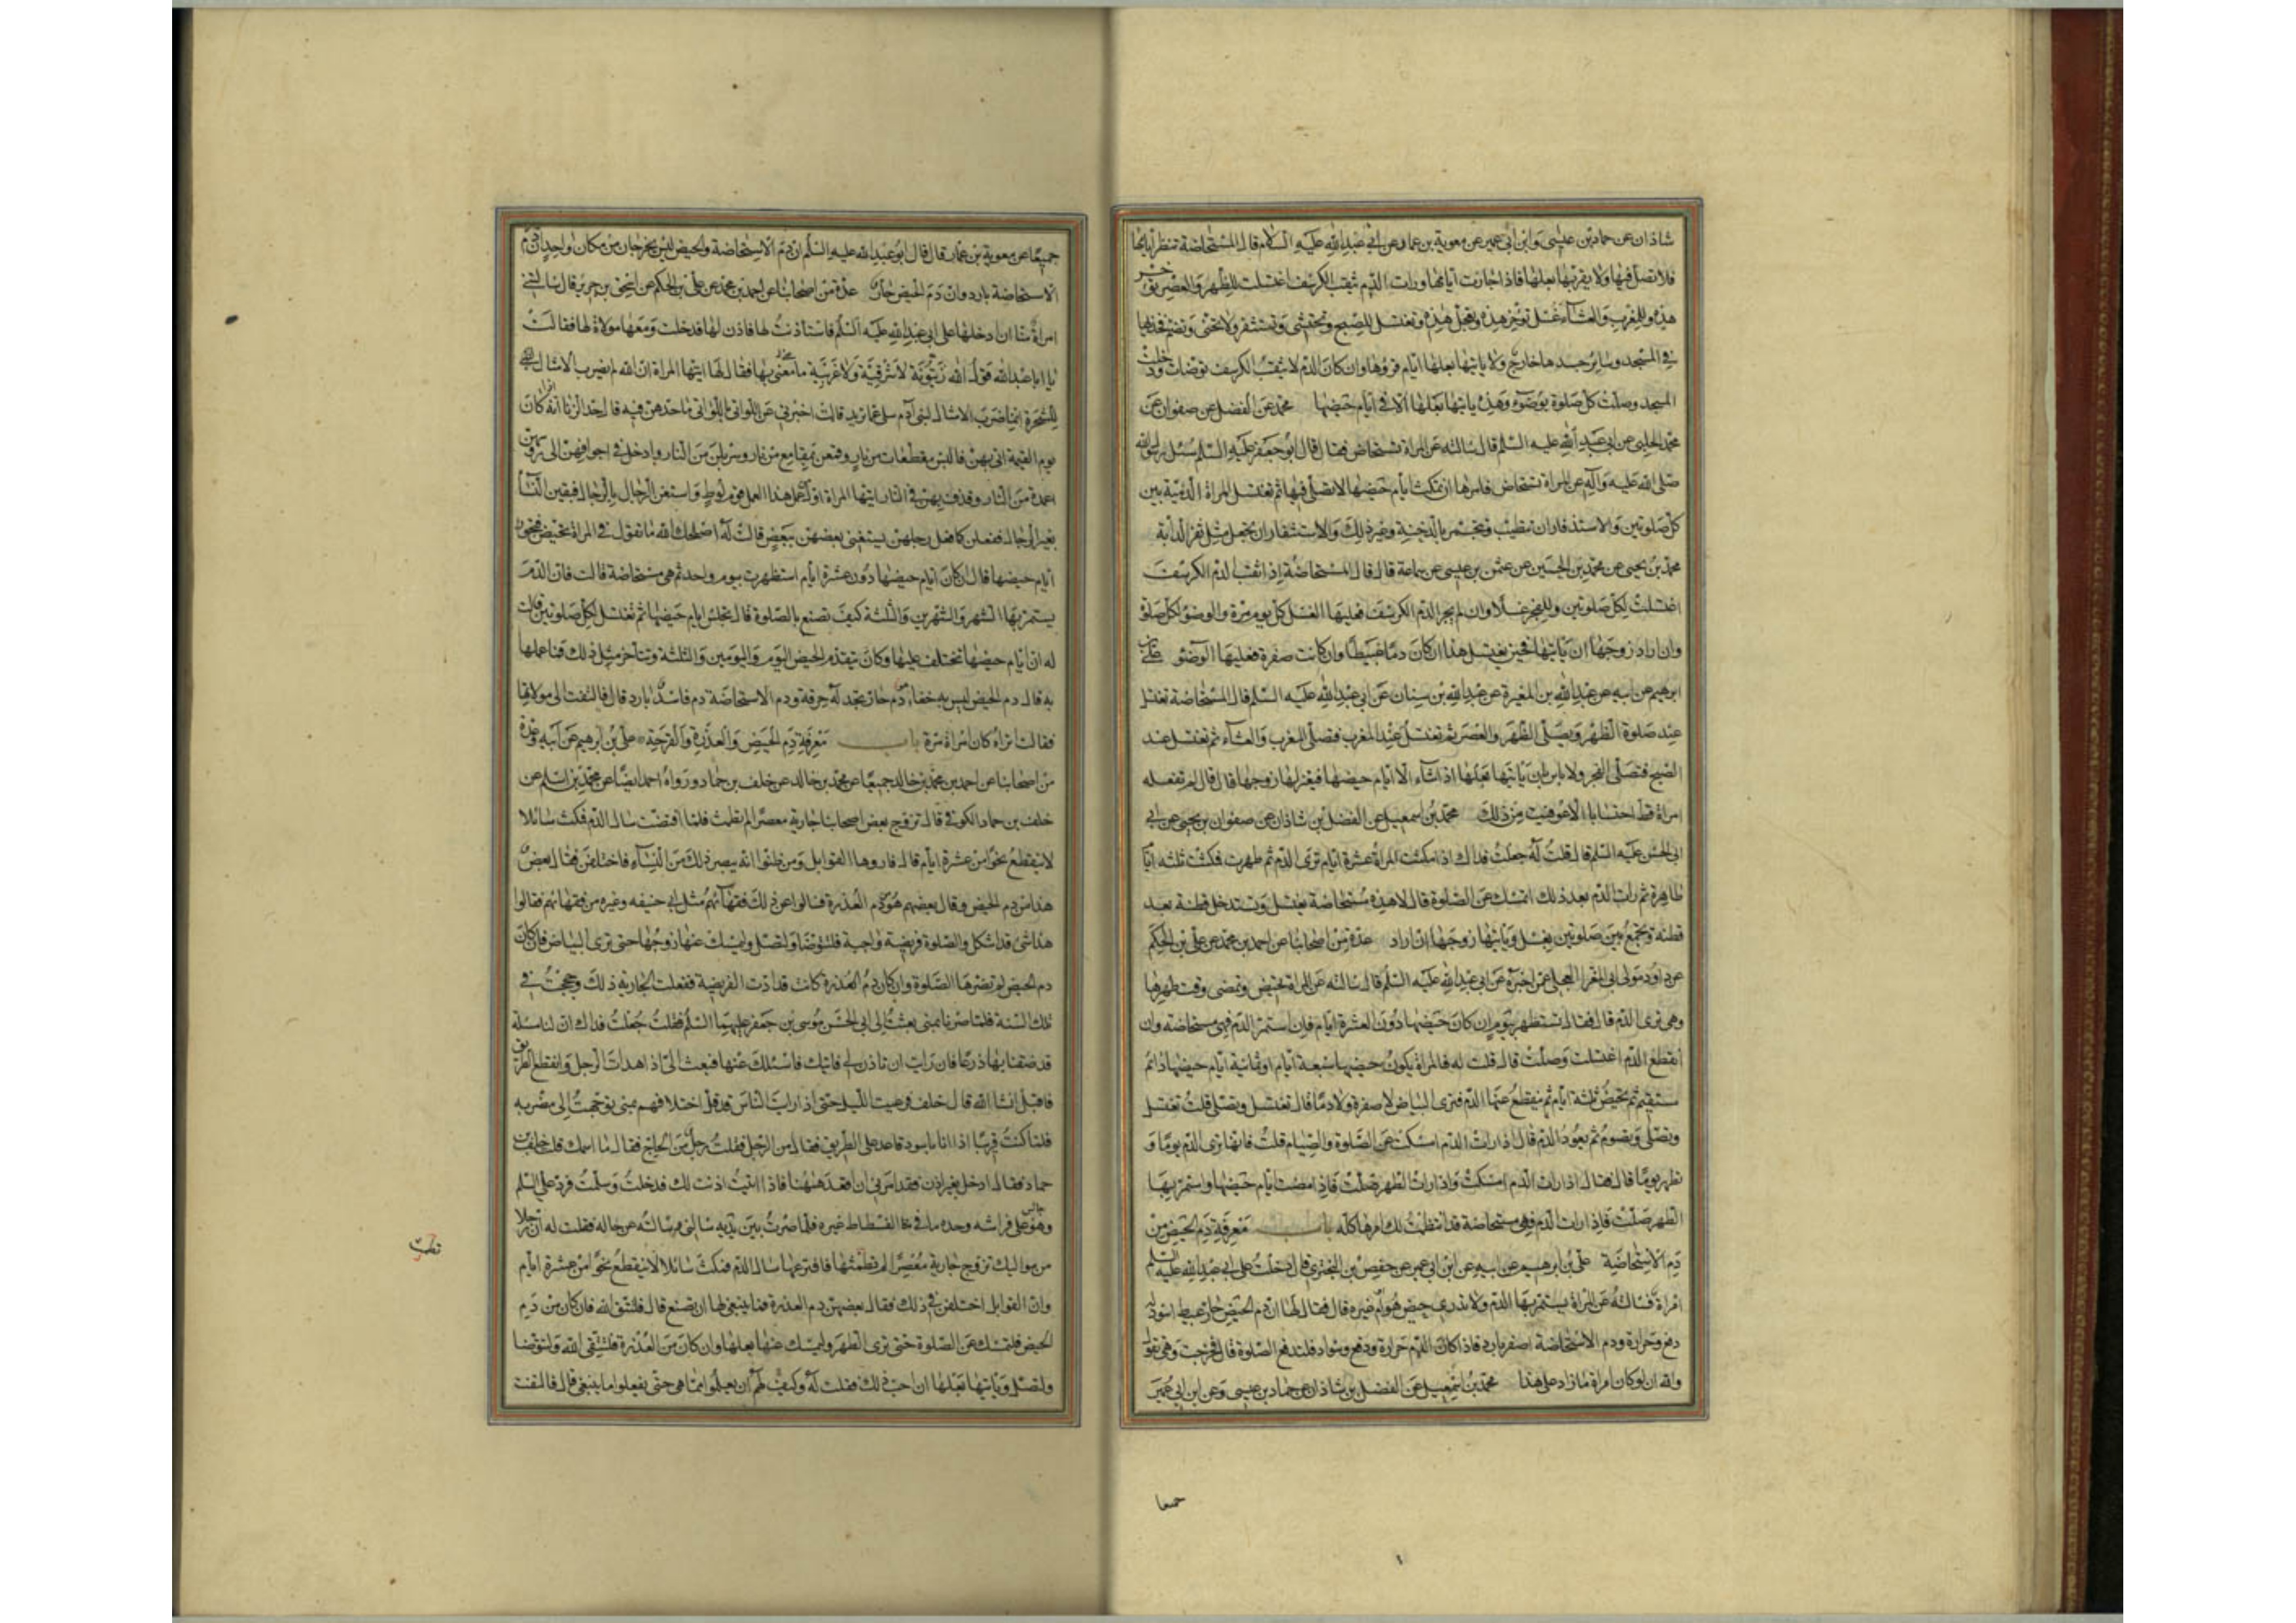 شاذان عن حماد بن عيسى وابن ابى عمير عن معوية بن عمار عن ابى عبد الله عليه السلام قال المستحاضة تنظر ايامها
فلا تصل فيها ولا يقربها بعلها فاذا جازت ايامها ورات الدم يثقب الكرسف اغتسلت للظهر والعصر تؤخر
هذه وللمغرب والعشاء غسل تؤخر هذه وتعجل هذه وتغتسل للصبح وتحتشى وتستثفر ولا تحنى وتضم فخذيها
فى المسجد وسائر جسدها خارج ولا ياتيها بعلها ايام قروها وان كان الدم لا يثقب الكرسف توضات ودخلت
المسجد وصلت كل صلوة بوضوء وهذه ياتيها بعلها الا فى ايام حيضها محمد عن الفضل عن صفوان عن
محمد الحلبى عن ابى عبد الله عليه السلم قال سالته عن المراة تستحاض فقال قال ابو جعفر عليه السلم سئل رسول الله
صلى الله عليه وآله عن المراة تستحاض فامرها ان تمكث ايام حيضها لا تصلى فيها ثم تغتسل المراة الدمية بين
كل صلوتين والاستذفار ان تطيب وتجمر بالدخنة وغير ذلك والاستثفار ان تجعل مثل ثفر الدابة
محمد بن يحيى عن محمد بن الحسين عن عثمن بن عيسى عن سماعة قال قال المستحاضة اذا ثقب الدم الكرسف
اغتسلت لكل صلوتين وللفجر غسلا وان لم يجز الدم الكرسف فعليها الغسل كل يوم مرة والوضؤ لكل صلوة
وان اراد زوجها ان ياتيها فحين تغتسل هذا ان كان دما عبيطا وان كانت صفرة فعليها الوضؤ على بن
ابرهيم عن ابيه عن عبد الله بن المغيرة عن عبد الله بن سنان عن ابى عبد الله عليه السلم قال المستحاضة تغتسل
عند صلوة الظهر وتصلى الظهر والعصر ثم تغتسل عند المغرب فتصلى المغرب والعشاء ثم تغتسل عند
الصبح فتصلى الفجر ولا باس بان ياتيها بعلها اذا شاء الا ايام حيضها فيعتزلها زوجها قال قال لم تفعله
امراة قط احتسابا الا عوفيت من ذلك محمد بن اسمعيل عن الفضل بن شاذان عن صفوان بن يحيى عن ابى
ابى الحسن عليه السلم قال قلت له جعلت فداك اذا مكثت المراة عشرة ايام ترى الدم ثم طهرت فمكثت ثلثة ايام
طاهرة ثم رات الدم بعد ذلك اتمسك عن الصلوة قال لا هذه مستحاضة تغتسل وتستدخل قطنة بعد
قطنة وتجمع بين صلوتين بغسل وياتيها زوجها ان اراد عدة من اصحابنا عن احمد بن محمد عن على بن الحكم
عن داود مولى ابى المغرا العجلى عمن اخبره عن ابى عبد الله عليه السلم قال سالته عن المراة تحيض وتمضى وقت طهرها
وهى ترى الدم قال فقال تستظهر بيوم ان كان حيضها دون العشرة ايام فان استمر الدم فهى مستحاضة وان
انقطع الدم اغتسلت وصلت قال قلت له فالمراة يكون حيضها سبعة ايام او ثمانية ايام حيضها دائم
مستقيم ثم تحيض ثلثة ايام ثم ينقطع عنها الدم فترى البياض لا صفرة ولا دما قال تغتسل وتصلى قلت تغتسل
وتصلى وتصوم ثم يعود الدم قال اذا رات الدم امسكت عن الصلوة والصيام قلت فانها ترى الدم يوما و
تطهر يوما قال فقال اذا رات الدم امسكت واذا رات الطهر صلت فاذا مضت ايام حيضها واستمر بها
الطهر صلت فاذا رات الدم فهى مستحاضة قد انتظمت لك امرها كله باب معرفة دم الحيض من
دم الاستحاضة على بن ابرهيم عن ابيه عن ابن ابى عمير عن حفص بن البخترى قال دخلت على ابى عبد الله عليه السلم
امراة فسالته عن المراة يستمر بها الدم ولا تدرى حيض هو ام غيره قال فقال لها ان دم الحيض حار عبيط اسود له
دفع وحرارة ودم الاستحاضة اصفر بارد فاذا كان للدم حرارة ودفع وسواد فلتدع الصلوة قال فخرجت وهى تقول
والله ان لو كان امراة ما زاد على هذا محمد بن اسمعيل عن الفضل بن شاذان عن حماد بن عيسى وعن ابن ابى عمير
جميعا
جميعا عن معوية بن عمار قال قال ابو عبد الله عليه السلم ان دم الاستحاضة والحيض ليس يخرجان من مكان واحد ان دم
الاستحاضة بارد وان دم الحيض حار عدة من اصحابنا عن احمد بن محمد عن على بن الحكم عن اسحق بن جرير قال سالتنى
امراة منا ان ادخلها على ابى عبد الله عليه السلم فاستاذنت لها فاذن لها فدخلت ومعها مولاة لها فقالت
يا ابا عبد الله قول الله زيتونة لا شرقية ولا غربية ما معنى بها فقال لها ايتها المراة ان الله لم يضرب الامثال
للشجرة انما ضرب الامثال لبنى آدم سلى عما تريد قالت اخبرنى عن اللواتى باللواتى ما حدهن فيه قال حد الزنا انه كان
يوم القيمة اتى بهن فالبسن مقطعات من نار وقنعن بمقامع من نار وسربلن من النار وادخل فى اجوافهن الى رؤسهن
اعمدة من النار وقذف بهن فى النار ايتها المراة اول من عمل هذا العمل قوم لوط واستغنى الرجال بالرجال فبقين النساء
بغير الرجال ففعلن كما فعل رجالهن يستغنى بعضهن ببعض قالت له اصلحك الله ما تقول فى المراة تحيض فتجوز
ايام حيضها قال ان كان ايام حيضها دون عشرة ايام استظهرت بيوم واحد ثم هى مستحاضة قالت فان الدم
يستمر بها الشهر والشهرين والثلثة كيف تصنع بالصلوة قال تجلس ايام حيضها ثم تغتسل لكل صلوتين قالت
له ان ايام حيضها تختلف عليها وكان يتقدم الحيض اليوم واليومين والثلثة ويتاخر مثل ذلك فما علمها
به قال دم الحيض ليس به خفاء دم حار تجد له حرقة ودم الاستحاضة دم فاسد بارد قال فالتفت الى مولاتها
فقالت اتراه كان امراة مرة باب معرفة دم الحيض والعذرة والقرحة على بن ابرهيم عن ابيه وعدة
من اصحابنا عن احمد بن محمد بن خالد جميعا عن محمد بن خالد عن خلف بن حماد ورواه احمد ايضا عن محمد بن اسلم عن
خلف بن حماد الكوفى قال تزوج بعض اصحابنا جارية معصرا لم تطمث فلما افتضت سال الدم فمكث سائلا
لا ينقطع نحوا من عشرة ايام قال فاروها القوابل ومن ظنوا انه يبصر ذلك من النساء فاختلفن فقال بعض
هذا من دم الحيض وقال بعضهم هو دم العذرة فسالوا عن ذلك فقهاءهم مثل ابى حنيفه وغيره من فقهائهم فقالوا
هذا شئ قد اشكل والصلوة فريضة واجبة فلتتوضا ولتصل وليمسك عنها زوجها حتى ترى البياض فان كان
دم الحيض لم تضرها الصلوة وان كان دم العذرة كانت قد ادت الفريضة ففعلت الجارية ذلك وحججت فى
تلك السنة فلما صرنا بمنى بعثت الى ابى الحسن موسى بن جعفر عليهما السلم فقلت جعلت فداك ان لنا مسئلة
قد ضقنا بها ذرعا فان رايت ان تاذن لى فاتيك فاسئلك عنها فبعث الى اذا هدات الرجل وانقطع الطريق
فاقبل انشا الله قال خلف فرعيت الليل حتى اذا رايت الناس قد قل اختلافهم بمنى توجهت الى مضربه
فلما كنت قريبا اذا انا باسود قاعد على الطريق فقال من الرجل فقلت رجل من الحاج فقال ما اسمك قلت خلف بن
حماد فقال ادخل بغير اذن فقد امرنى ان اقعد ههنا فاذا اتيت اذنت لك فدخلت وسلمت فرد على السلم
وهو جالس على فراشه وحده ما فى الفسطاط غيره فلما صرت بين يديه سالنى وسالته عن حاله فقلت له ان رجلا
من مواليك تزوج جارية معصرا لم تطمث فلما فافترعها سال الدم فمكث سائلا لا ينقطع نحوا من عشرة ايام
وان القوابل اختلفن فى ذلك فقال بعضهن دم العذرة فما ينبغى لها ان تصنع قال فلتتق الله فان كان من دم
الحيض فلتمسك عن الصلوة حتى ترى الطهر وليمسك عنها بعلها وان كان من العذرة فلتتقى الله ولتتوضا
ولتصل وياتيها بعلها ان احب ذلك فقلت له وكيف لهم ان يعلموا مما هى حتى يفعلوا ما ينبغى قال فالتفت